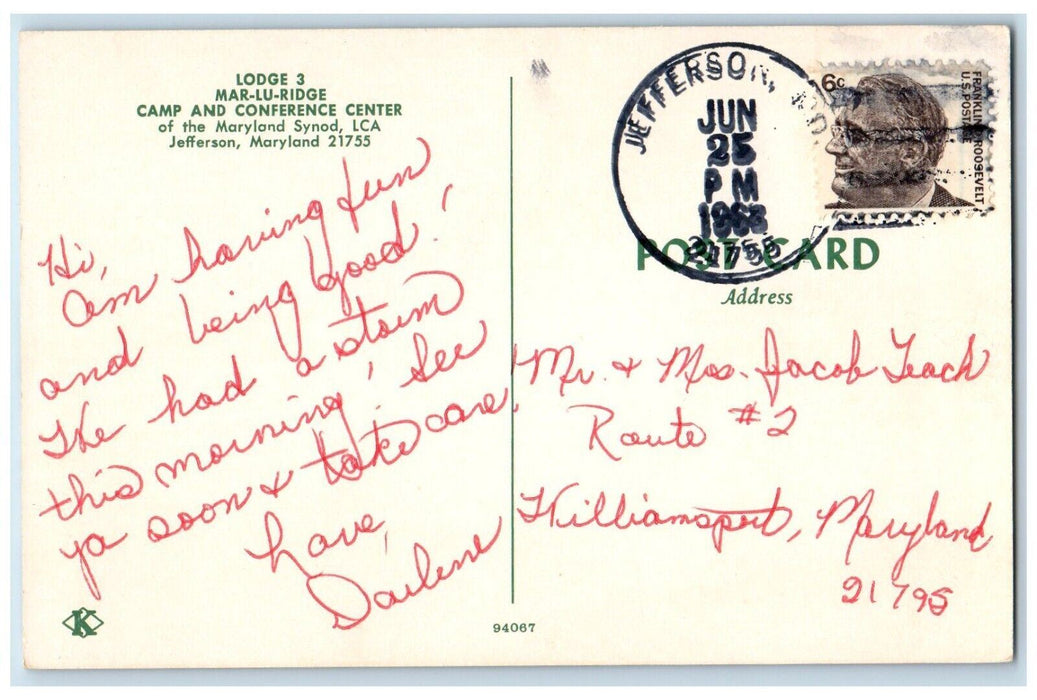 LODGE 3
MAR-LU-RIDGE
CAMP AND CONFERENCE CENTER
of the Maryland Synod, LCA
Jefferson, Maryland 21755
Hi,
Am having fun
and being good!
We had a storm
this morning! See
ya soon & take care.
Love,
Darlene
K
94067
JEFFERSON, MD.
JUN
25
PM
1968
21755
6c
FRANKLIN D. ROOSEVELT
U.S. POSTAGE
POST CARD
Address
Mr. & Mrs. Jacob Teach
Route #2
Williamsport, Maryland
21795